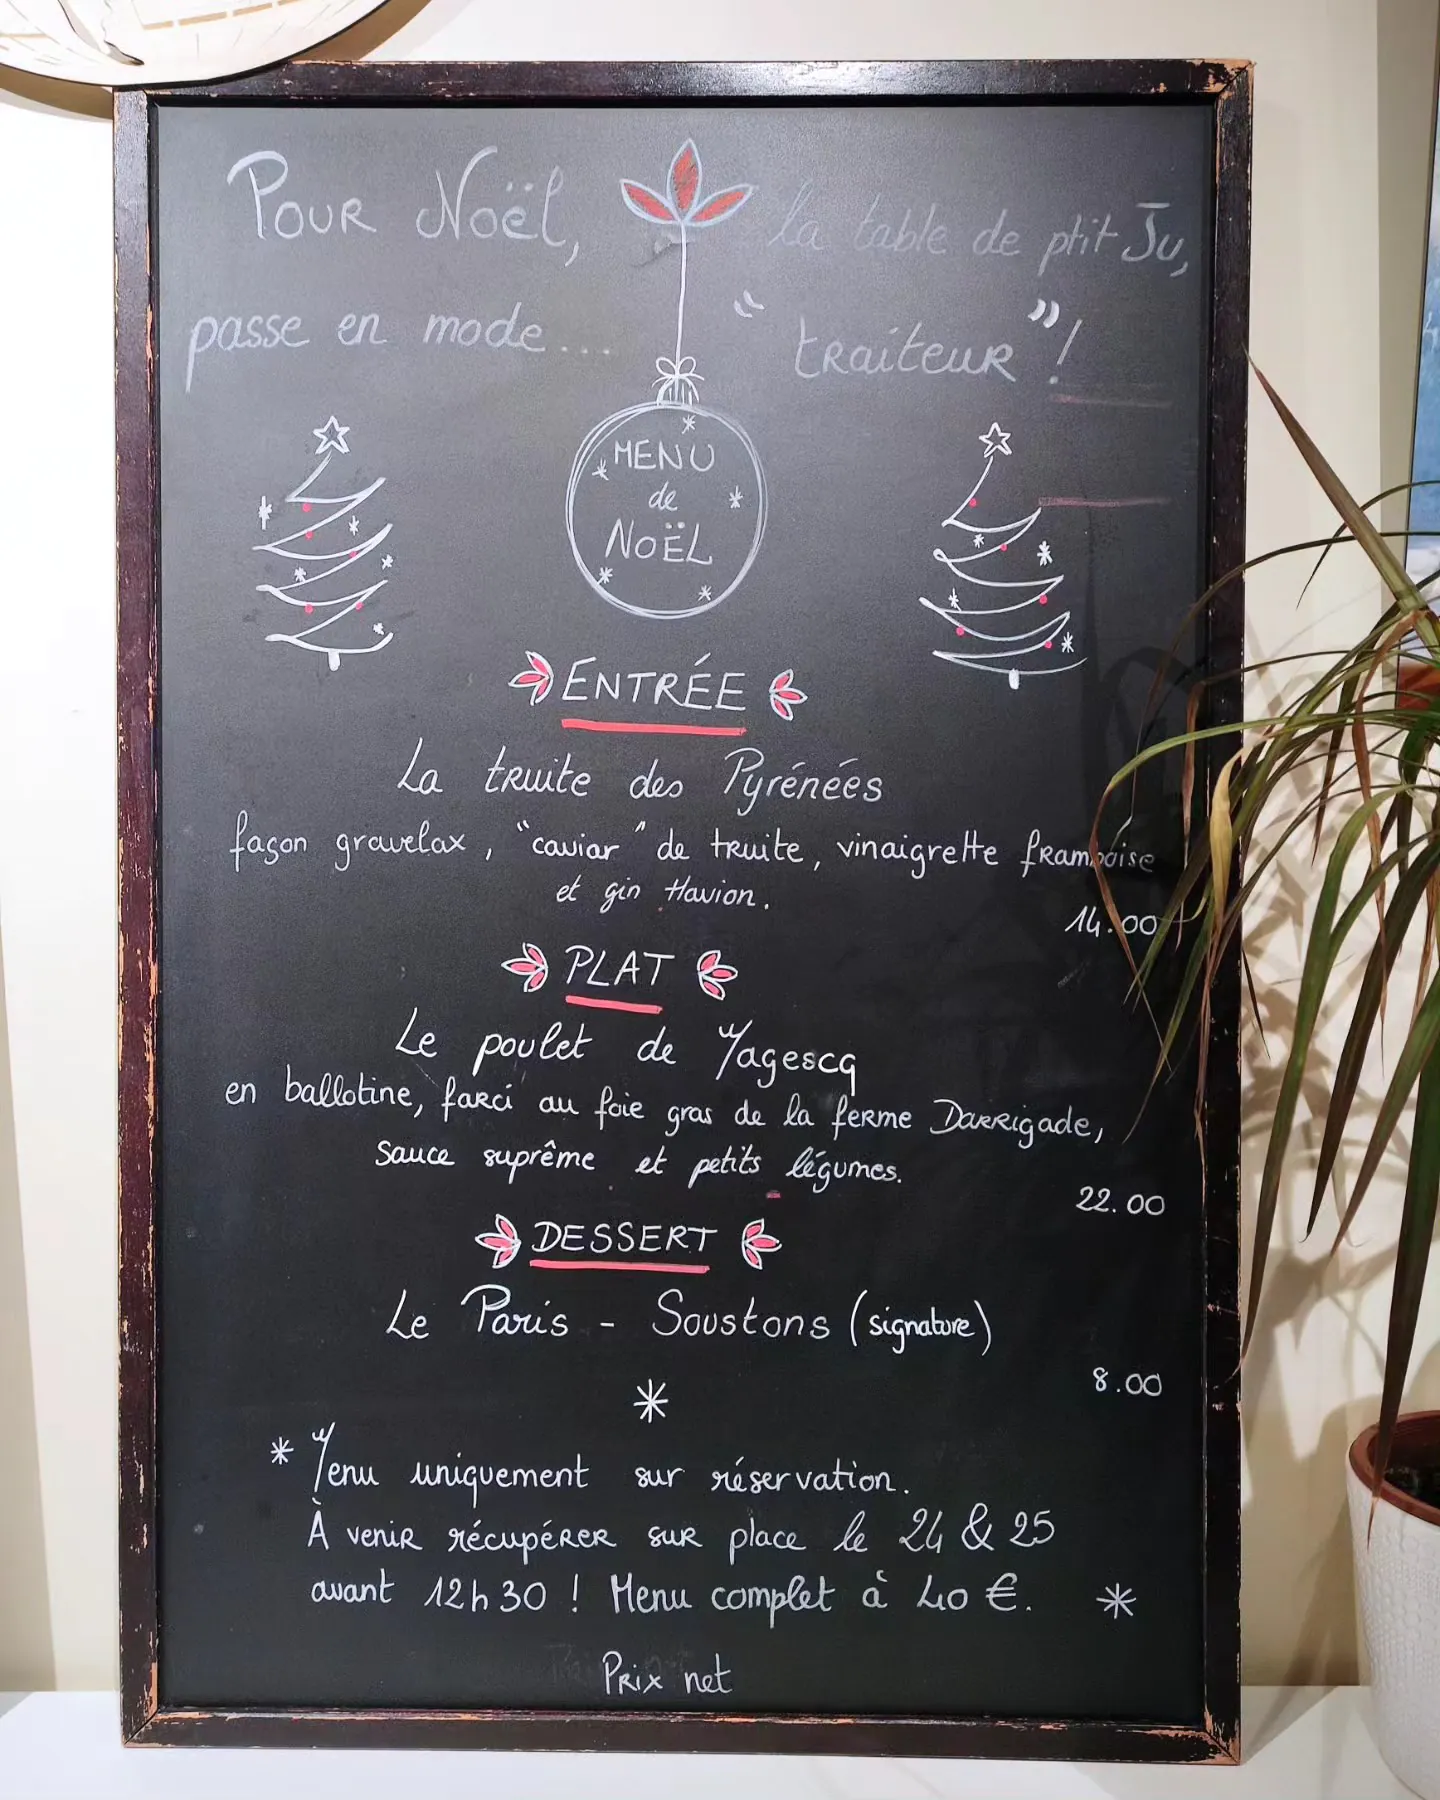 Pour Noël, la table de ptit Ju,
passe en mode.... "traiteur"!
MENU
de
NOËL
ENTRÉE
La truite des Pyrénées
façon gravelax, "caviar" de truite, vinaigrette framboise
et gin Havion.
14.00
PLAT
Le poulet de Magescq
en ballotine, farci au foie gras de la ferme Darrigade,
sauce suprême et petits légumes.
22.00
DESSERT
Le Paris - Soustons (signature)
8.00
*
* Menu uniquement sur réservation.
À venir récupérer sur place le 24 & 25
avant 12h30 ! Menu complet à 40 €. *
Prix net